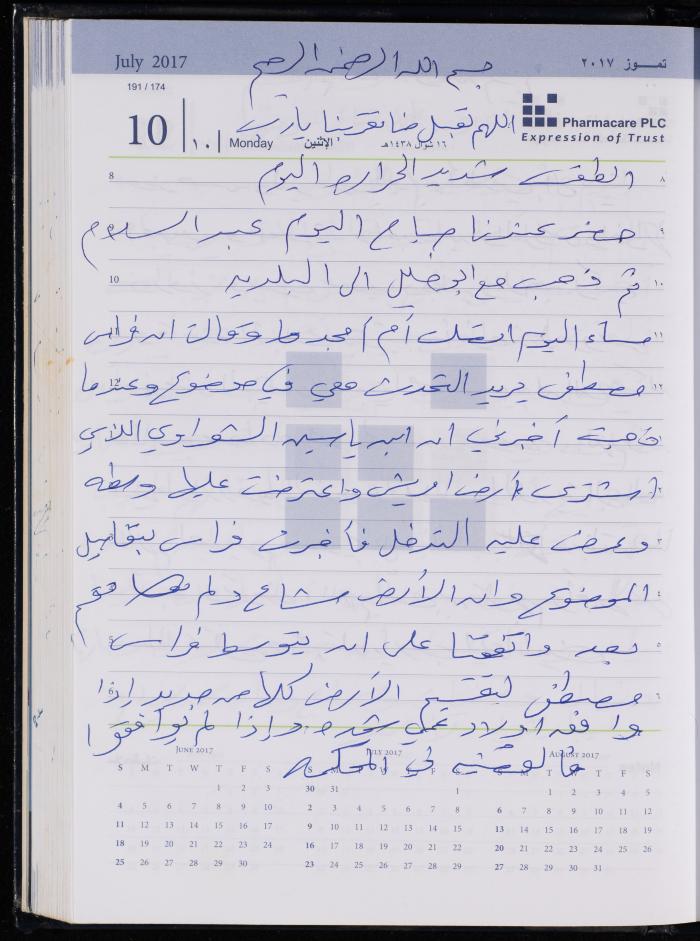 July 2017
تمــوز ٢٠١٧
بسم الله الرحمن الرحيم
191 / 174
10
١٠
Monday
الإثنين
١٦ شوال ١٤٣٨هـ
Pharmacare PLC
Expression of Trust
اللهم تقبل منا تقربنا يا رب
الطقس شديد الحرارة اليوم
حضر عندنا صباح اليوم عبد السلام
ثم ذهب مع ابو الى البلدية
مساء اليوم اتصلت أم أمجد وقالت ان فراس
مصطفى يريد التحدث معي في موضوع وعندما
ذهبت أخبرني ان ابن ياسين الشواوي اللذي
اشترى أرض واعترضت عليها
وعرض عليه التدخل فأخبرت فراس بتفاصيل
الموضوع وان الأرض مشاع ولم
بعد واتفقنا على ان يتوسط فراس
مصطفى لتقسيم الأرض كلها من جديد إذا
وافق اولاد عمي وإذا لم يوافقوا
فالقضية في المحكمة
8 ٨
٩
10 ١٠
١١
12 ١٢
JUNE 2017
S M T W T F S
1 2 3
4 5 6 7 8 9 10
11 12 13 14 15 16 17
18 19 20 21 22 23 24
25 26 27 28 29 30
JULY 2017
30 31 1
2 3 4 5 6 7 8
9 10 11 12 13 14 15
16 17 18 19 20 21 22
23 24 25 26 27 28 29
AUGUST 2017
1 2 3 4 5
6 7 8 9 10 11 12
13 14 15 16 17 18 19
20 21 22 23 24 25 26
27 28 29 30 31